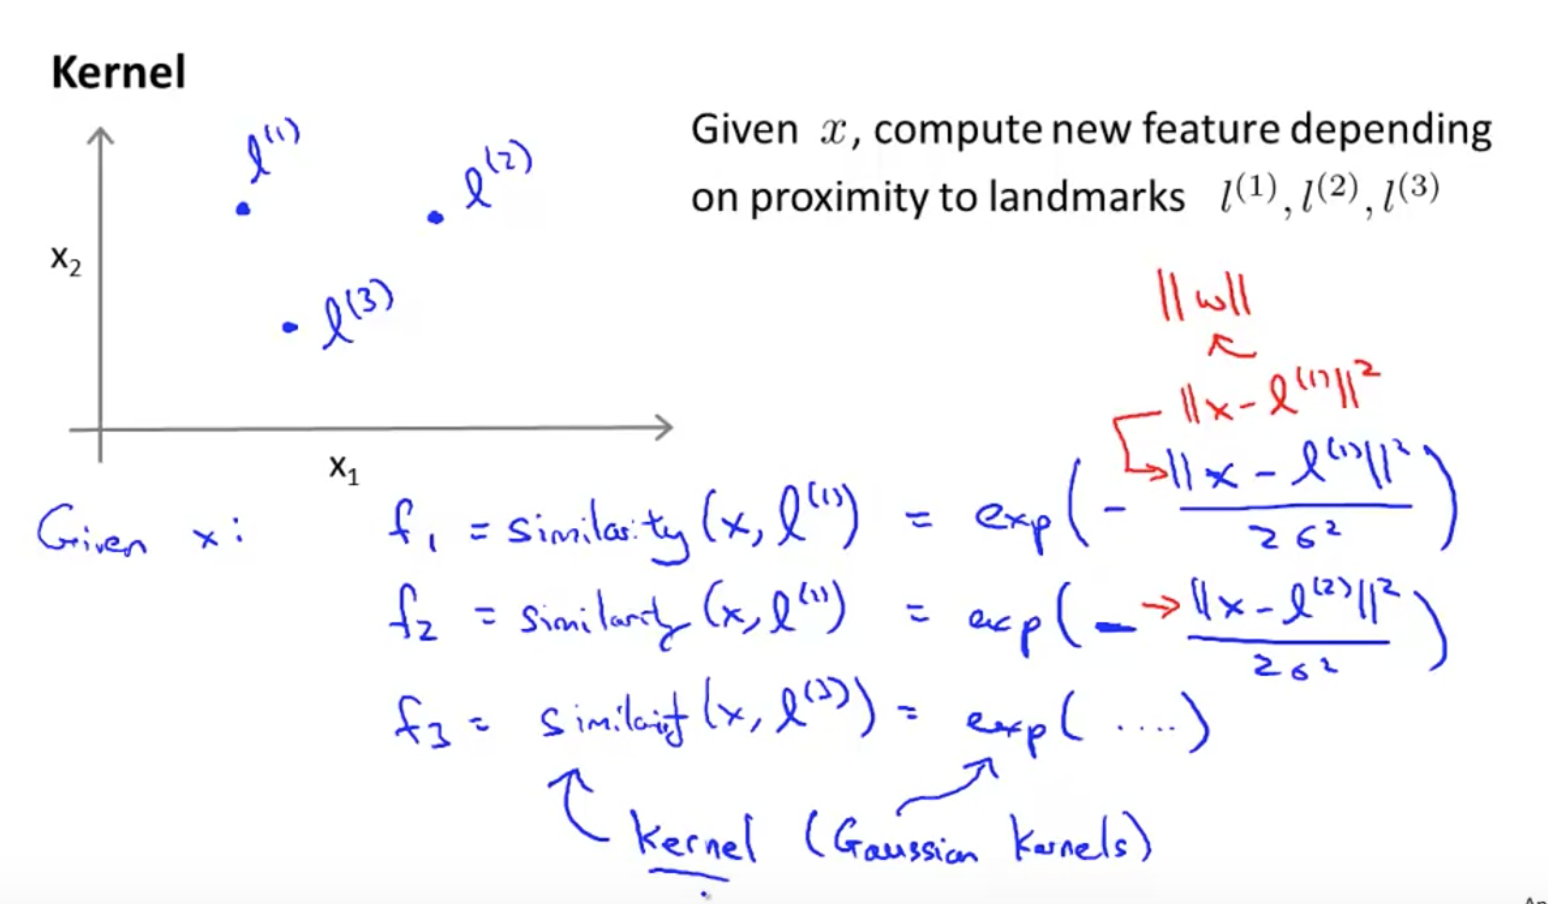 Kernel
l^(1)
l^(2)
x₂
l^(3)
x₁
Given x, compute new feature depending
on proximity to landmarks l^(1), l^(2), l^(3)
||w||
||x - l^(1)||²
Given x: f₁ = similarity (x, l^(1)) = exp(- ||x - l^(1)||² / 2σ²)
f₂ = similarity (x, l^(1)) = exp(- ||x - l^(2)||² / 2σ²)
f₃ = similarity (x, l^(3)) = exp( .... )
kernel (Gaussian kernels)